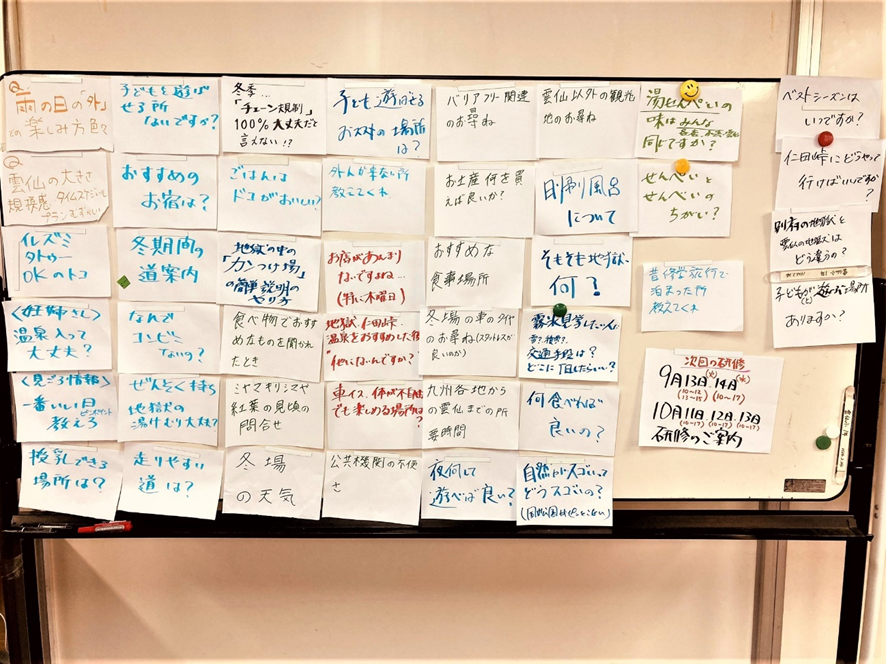 Q.
雨の日の「外」
の楽しみ方色々
子どもを遊ば
せる所
ないですか?
冬季…
「チェーン規制」
100%大丈夫だと
言えない!?
子ども遊ばせる
おススメの場所
は?
バリアフリー関連
のお尋ね
雲仙以外の観光
地のお尋ね
湯せんぺいの
味はみんな
同じですか?
ベストシーズンは
いつですか?
Q.
雲仙の大きさ
規模感 タイムスケジュール
おすすめの
お宿は?
ごはんは
ドコがおいしい?
外人が来ない所
教えてくれ
お土産何を買
えば良いか?
日帰り風呂
について
せんぺいと
せんべいの
ちがい?
仁田峠にどうやって
行けばいいですか
?
イレズミ
タトゥー
OKのトコ
冬期間の
道案内
地獄の中の
「カンつけ場」
の簡単説明の
やり方
お店があんまり
ないですよね…
(特に木曜日)
おすすめな
食事場所
そもそも地獄、
何?
昔修学旅行で
泊まった所
教えてくれ
別府の地獄と
雲仙の地獄は
どう違うの?
<妊婦さん>
温泉入って
大丈夫?
なんで
コンビニ
ないの?
食べ物でおすす
めなものを聞かれ
たとき
地獄、仁田峠、
温泉をおすすめした後
"他にないんですか?"
冬場の車のタイヤ
のお尋ね(スタットレスが
良いのか)
霧氷見学したい人
交通手段は?
どこに1日したらいい?
子どもが遊ぶ場所
ありますか?
<見ごろ情報>
一番いい日
ピンポイント
教えろ
ぜんそく持ち
地獄の
湯けむり大丈夫?
ミヤマキリシマや
紅葉の見頃の
問合せ
車イス、体が不自由
でも楽しめる場所は?
九州各地か
らの雲仙までの所
要時間
何食べれば
良いの?
次回の研修
9月13日(火) 14日(水)
(10-17)
10月11日, 12日, 13日
(10-17) (10-17) (10-17)
研修のご案内
授乳できる
場所は?
走りやすい
道は?
冬場
の天気
公共機関の不便
さ
夜何して
遊べば良い?
自然がスゴいって
どうスゴいの?